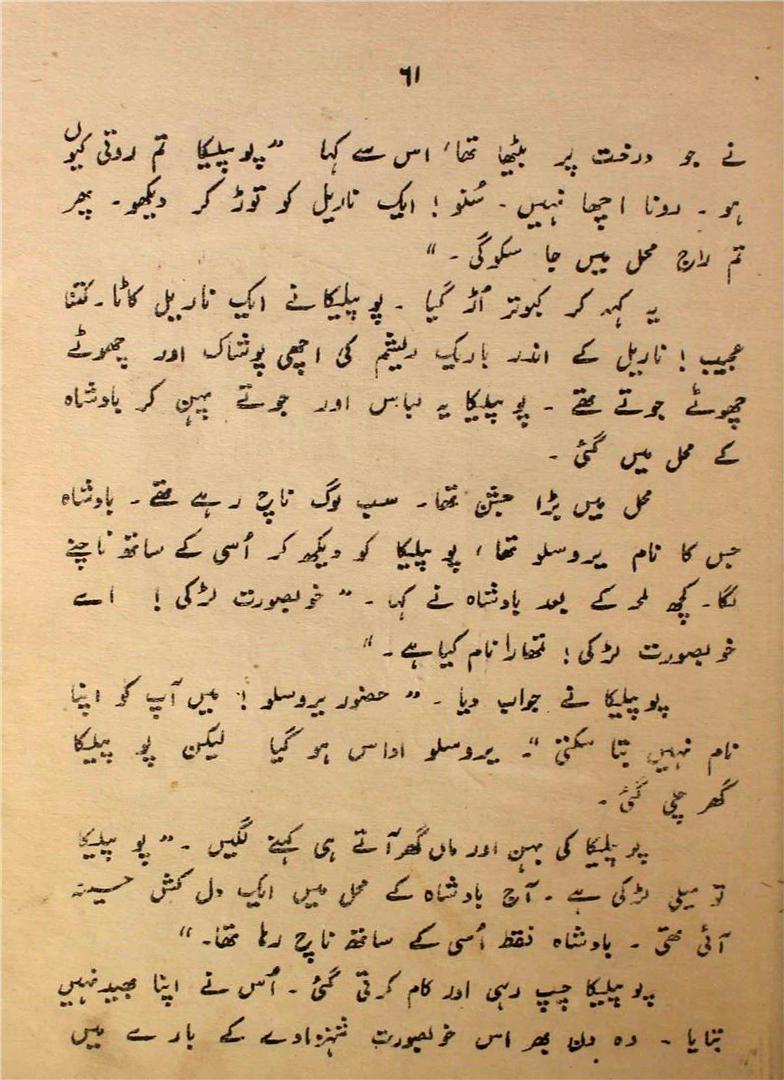 ٦١
نے جو درخت پر بیٹھا تھا، اس سے کہا " پو پلیکا تم روتی کیوں
ہو ۔ رونا اچھا نہیں ۔ سُنو ! ایک ناریل کو توڑ کر دیکھو ۔ پھر
تم راج محل میں جا سکوگی ۔ "
یہ کہہ کر کبوتر اُڑ گیا ۔ پو پلیکا نے ایک ناریل کاٹا ۔ کتنا
عجیب ! ناریل کے اندر باریک ریشم کی اچھی پوشاک اور چھوٹے
چھوٹے جوتے تھے ۔ پو پلیکا یہ لباس اور جوتے پہن کر بادشاہ
کے محل میں گئی ۔
محل میں بڑا جشن تھا ۔ سب لوگ ناچ رہے تھے ۔ بادشاہ
جس کا نام یروسلو تھا ، پو پلیکا کو دیکھ کر اُسی کے ساتھ ناچنے
لگا ۔ کچھ لمحہ کے بعد بادشاہ نے کہا ۔ " خوبصورت لڑکی ! اے
خوبصورت لڑکی ! تمھارا نام کیا ہے ۔ "
پو پلیکا نے جواب دیا ۔ " حضور یروسلو ! میں آپ کو اپنا
نام نہیں بتا سکتی " ۔ یروسلو اداس ہو گیا لیکن پو پلیکا
گھر چلی گئی ۔
پو پلیکا کی بہن اور ماں گھر آتے ہی کہنے لگیں ۔ " پو پلیکا
تو میلی لڑکی ہے ۔ آج بادشاہ کے محل میں ایک دل کش حسینہ
آئی تھی ۔ بادشاہ فقط اُسی کے ساتھ ناچ رہا تھا ۔ "
پو پلیکا چپ رہی اور کام کرتی گئی ۔ اُس نے اپنا بھید نہیں
بتایا ۔ وہ دن بھر اس خوبصورت شہزادے کے بارے میں